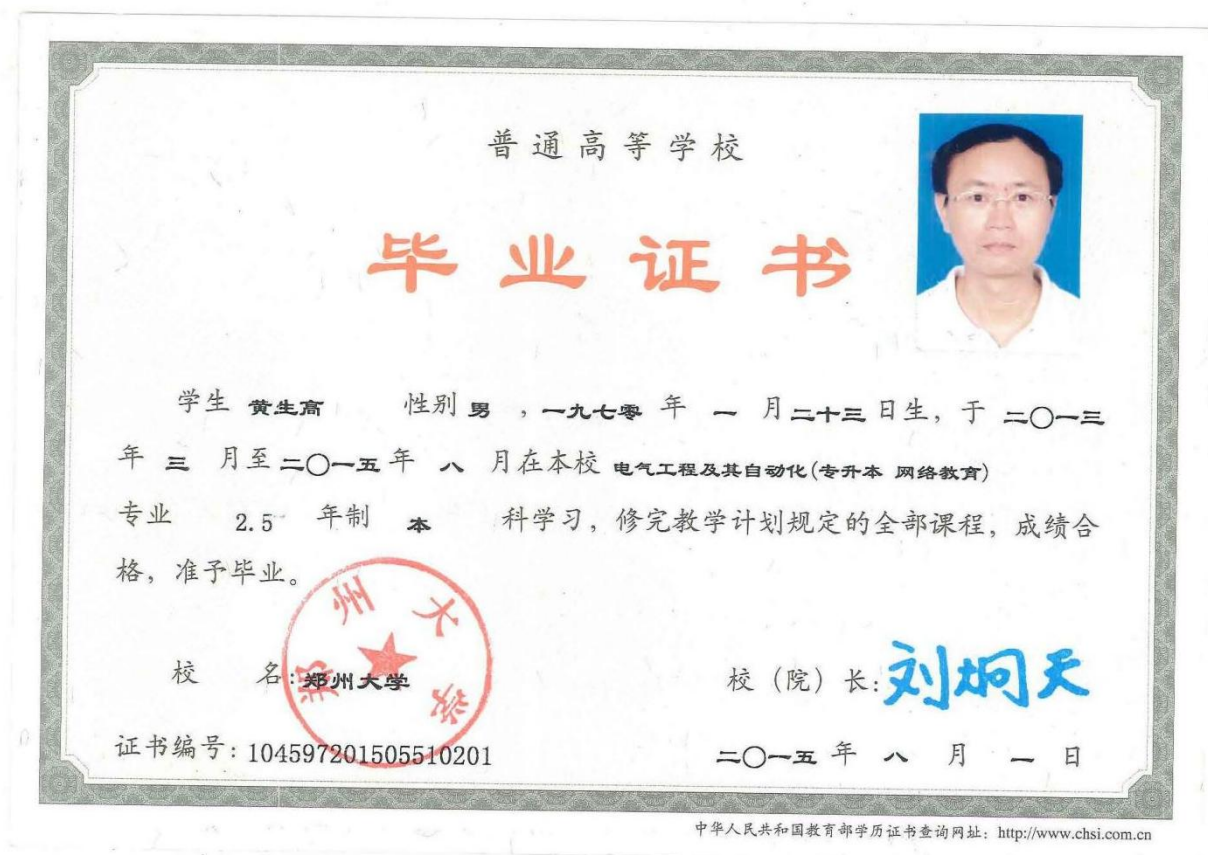 普通高等学校
毕业证书
学生 黄生高 性别 男 ，一九七零 年 一 月二十三日生，于 二〇一三
年 三 月至二〇一五年 八 月在本校 电气工程及其自动化(专升本 网络教育)
专业 2.5 年制 本 科学习，修完教学计划规定的全部课程，成绩合
格，准予毕业。
郑州大学
校 名:郑州大学
校（院）长:刘炯天
证书编号：104597201505510201
二〇一五 年 八 月 一 日
中华人民共和国教育部学历证书查询网址：http://www.chsi.com.cn